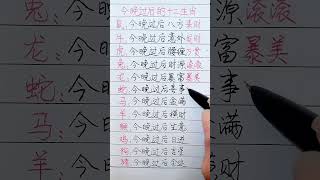 今晚过后的十二生肖
鼠,今晚过后八方来财
牛,今晚过后意外
虎,今晚过后腰缠万贯
兔,今晚过后财源滚滚
龙,今晚过后暴富暴美
蛇,今晚过后喜事
马,今晚过后金满
羊,今晚过后横财
猴,今晚过后生意
鸡,今晚过后日进
狗,今晚过后吉星
猪,今晚过后
兔,今
龙,今
蛇,今
马,今
羊,今
源滚滚
富暴美
事
满
财